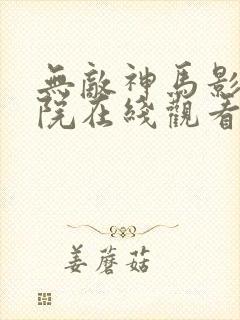 無敵神馬影
院在綫觀看
姜蘑菇